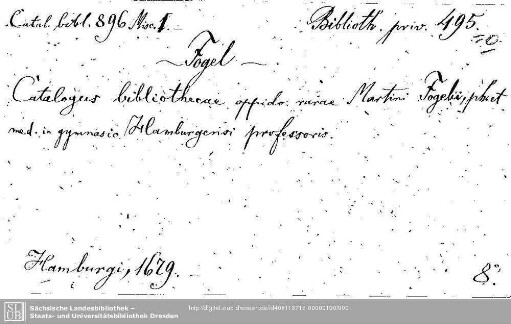 Catal. bibl. 896 Misc. 1 Biblioth. priv. 495.
Fogel
Catalogus bibliothecae oppido rarae Martini Fogelii, ph. et
med. in gymnasio Hamburgensi professoris.
Hamburgi, 1679. 8°.
Sächsische Landesbibliothek –
Staats- und Universitätsbibliothek Dresden